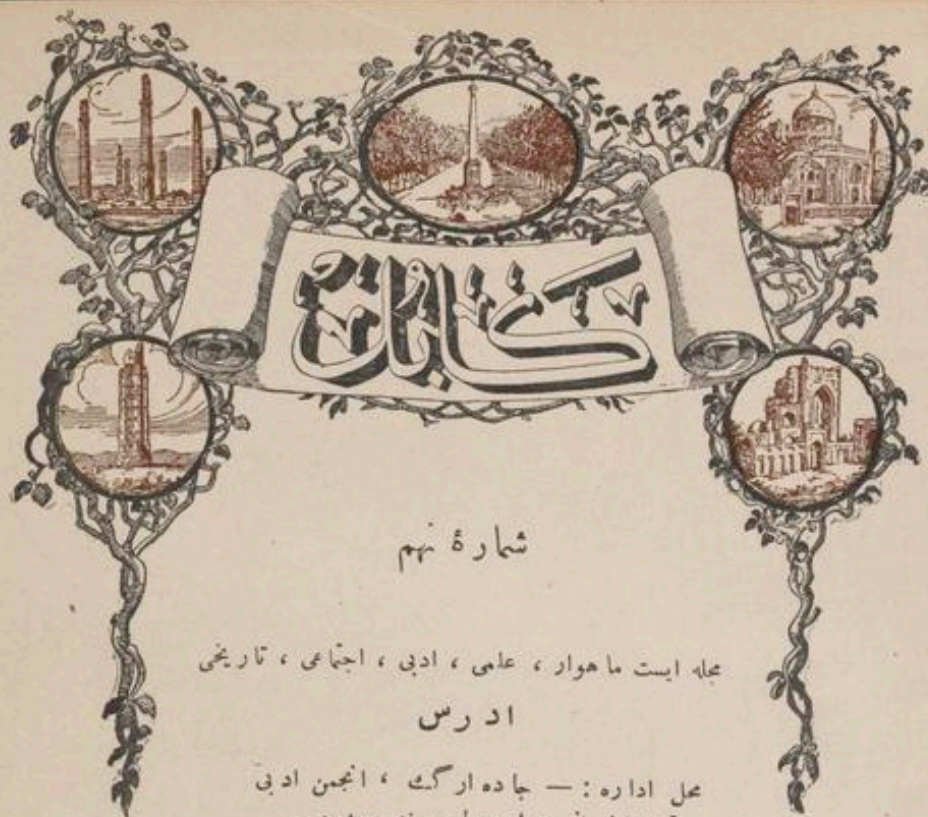 کابل
شمارهٔ نهم
مجله ایست ماهوار ، علمی ، ادبی ، اجتماعی ، تاریخی
ادرس
محل اداره : — جاده ارگ ، انجمن ادبی